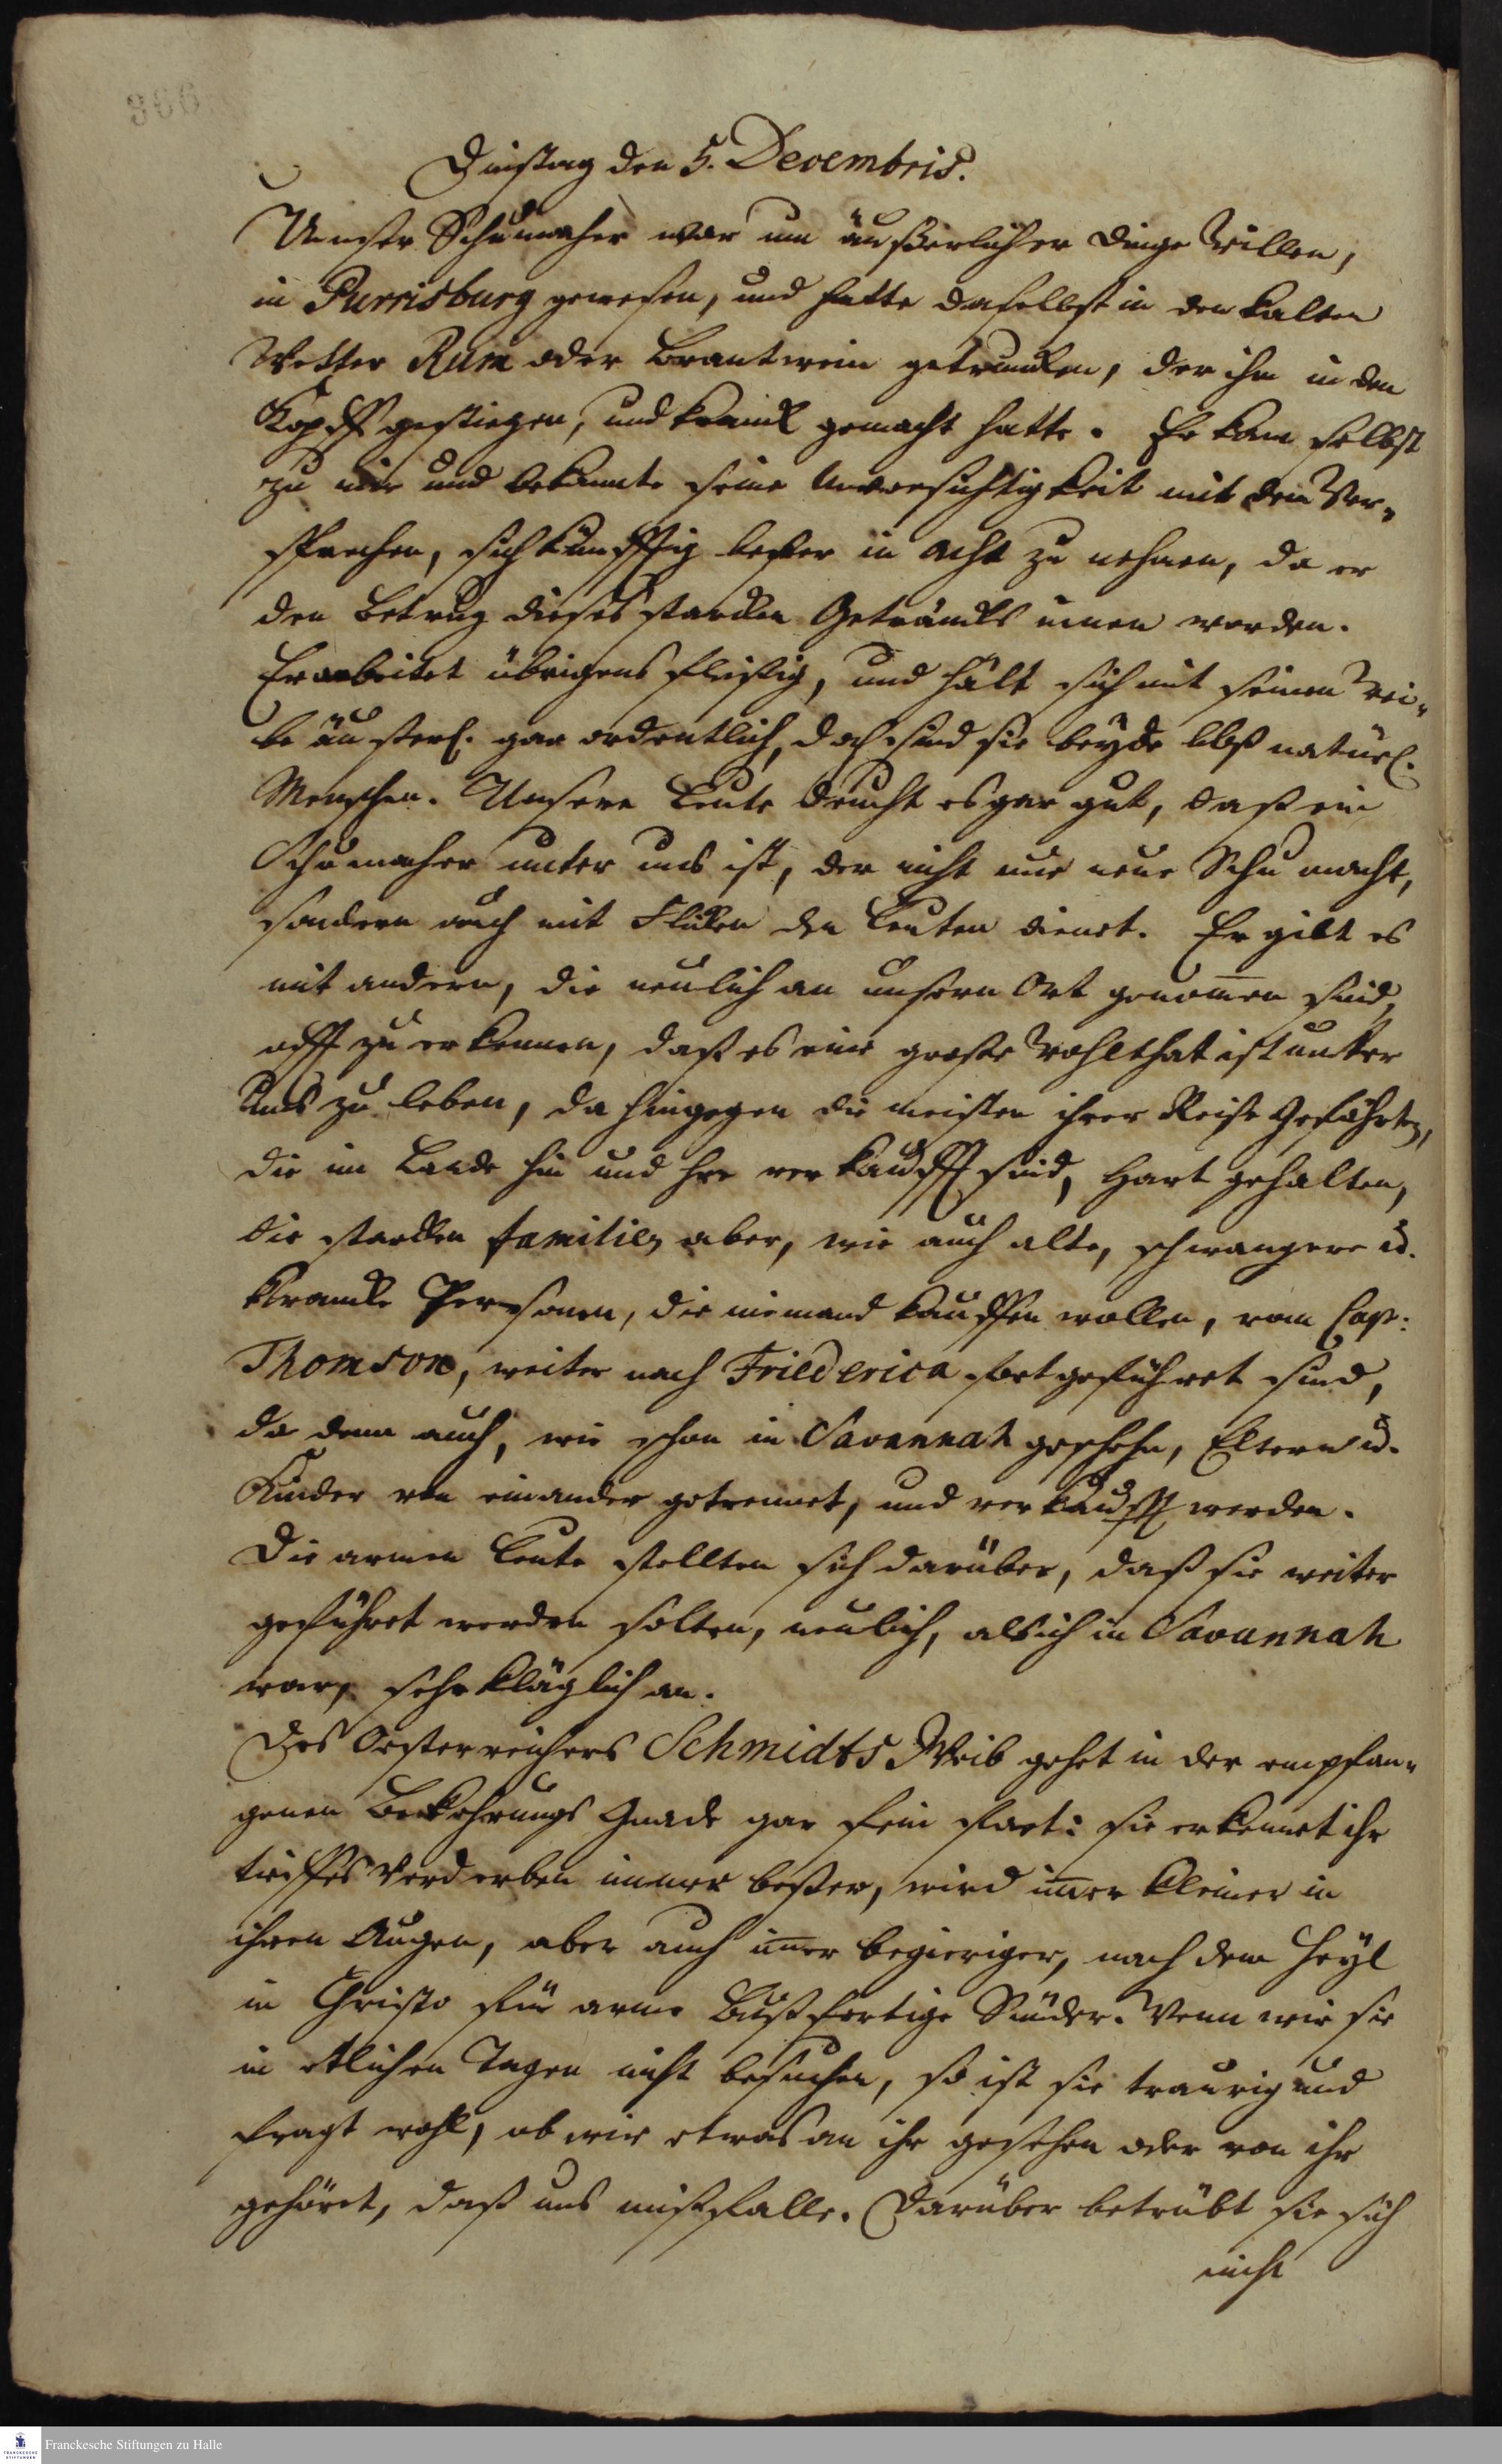 Dinstag den 5. Decembris.
Unser Schumacher war um äußerlicher Dinge willen,
in Purrisburg gewesen, und hatte daselbst in den kalten
Wetter Rum oder Brantwein getruncken, der ihm in den
Kopff gestiegen, und kranck gemacht hatte. Er kam selbst
zu mir und bekannte seine Unvorsichtigkeit mit dem Ver-
sprechen, sich künfftig besser in acht zu nehmen, da er
den Betrug dieses starcken Geträncks innen worden.
Er arbeitet übrigens fleißig, und hält sich mit seinem Wei-
be äuserl. gar ordentlich, doch sind sie beyde blos natürl.
Menschen. Unsere Leute deucht es gar gut, daß ein
Schumacher unter uns ist, der nicht nur neue Schu macht,
sondern auch mit Flicken den Leuten dienet. Er gibt es
mit andern, die neulich an unsern Ort genom̄en sind,
offt zu erkennen, daß es eine große Wohlthat ist unter
uns zu leben, da hingegen die meisten ihrer Reise Gefährten,
die im Lande hin und her verkaufft sind, hart gehalten,
die starcken familien aber, wie auch alte, schwangere u.
krancke Personen, die niemand kauffen wollen, vom Cap:
Thomson, weiter nach Friederica fortgeführet sind,
da denn auch, wie schon in Savannah geschehn, Eltern u.
Kinder von einander getrennet, und verkaufft werden.
Die armen Leute stellten sich darüber, daß sie weiter
geführet werden solten, neulich, als ich in Savannah
war, sehr kläglich an.
Des Oesterreichers Schmidts Weib gehet in der empfan-
genen Bekehrungs Gnade gar fein fort: sie erkennet ihr
tieffes Verderben immer beßer, wird im̄er kleiner in
ihren Augen, aber auch im̄er begieriger, nach dem Heyl
in Christo für arme bußfertige Sünder. Wenn wir sie
in etlichen Tagen nicht besuchen, so ist sie traurig und
fragt wohl, ob wir etwas an ihr gesehen oder von ihr
gehöret, daß uns mißfalle. Darüber betrübt sie sich
nicht
Franckesche Stiftungen zu Halle